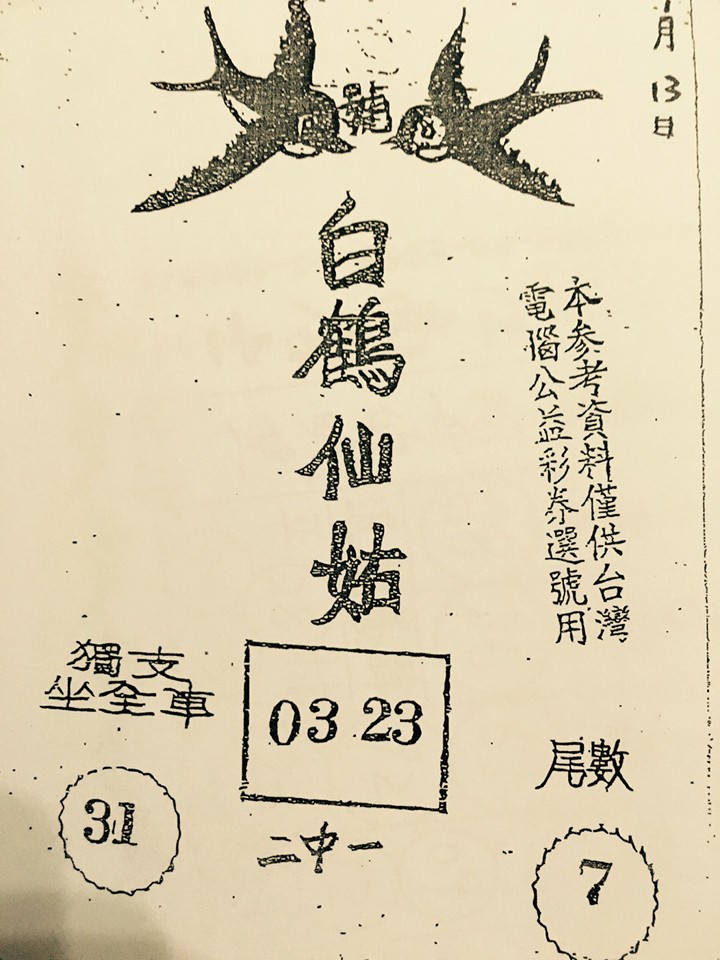 月13日
號
白鶴仙姑
本参考資料僅供台灣
電腦公益彩券選號用
獨支
坐全車
31
03 23
二中一
尾數
7